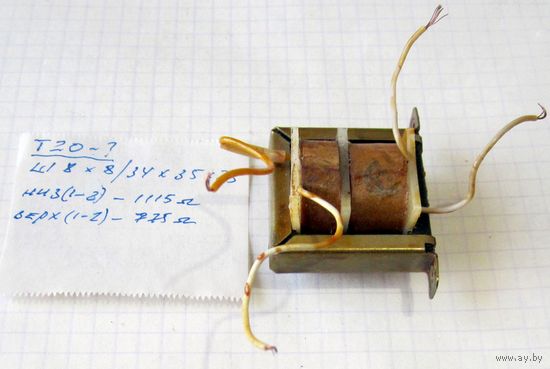 Т20-?
Ш 8 х 8 / 34 х 35 х
низ (1-2) - 1115 Ω
верх (1-2) - 775 Ω
www.ay.by